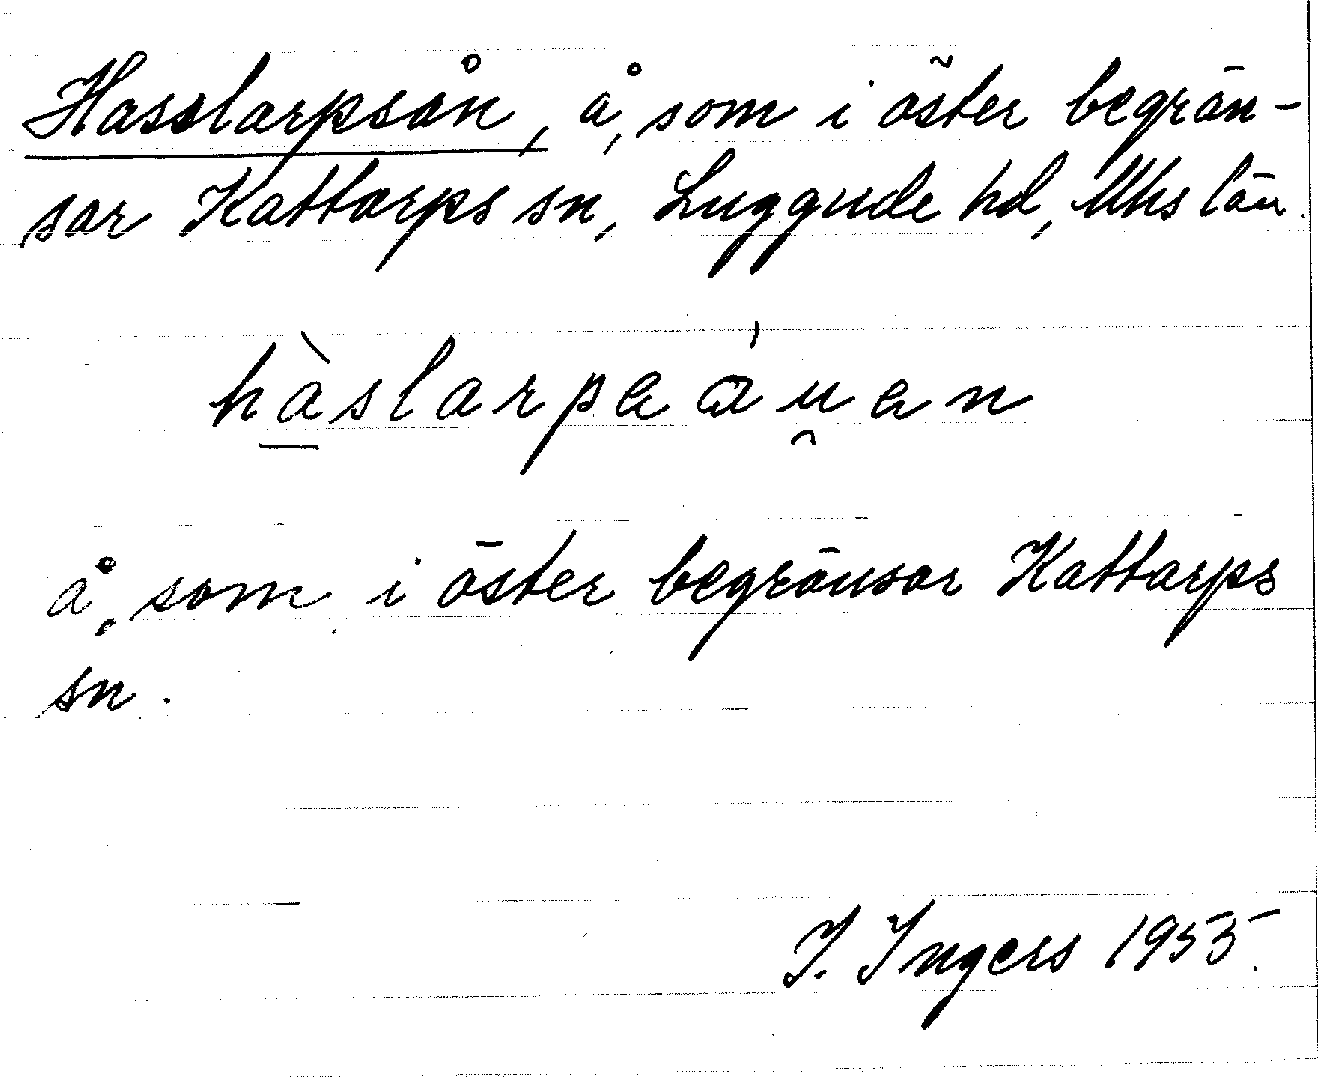 Hasslarpsån, å, som i öster begrän-
sar Kattarps sn, Luggude hd, Mhs län.
hàslarpaáu̯an
å, som i öster begränsar Kattarps
sn.
I. Ingers 1955.